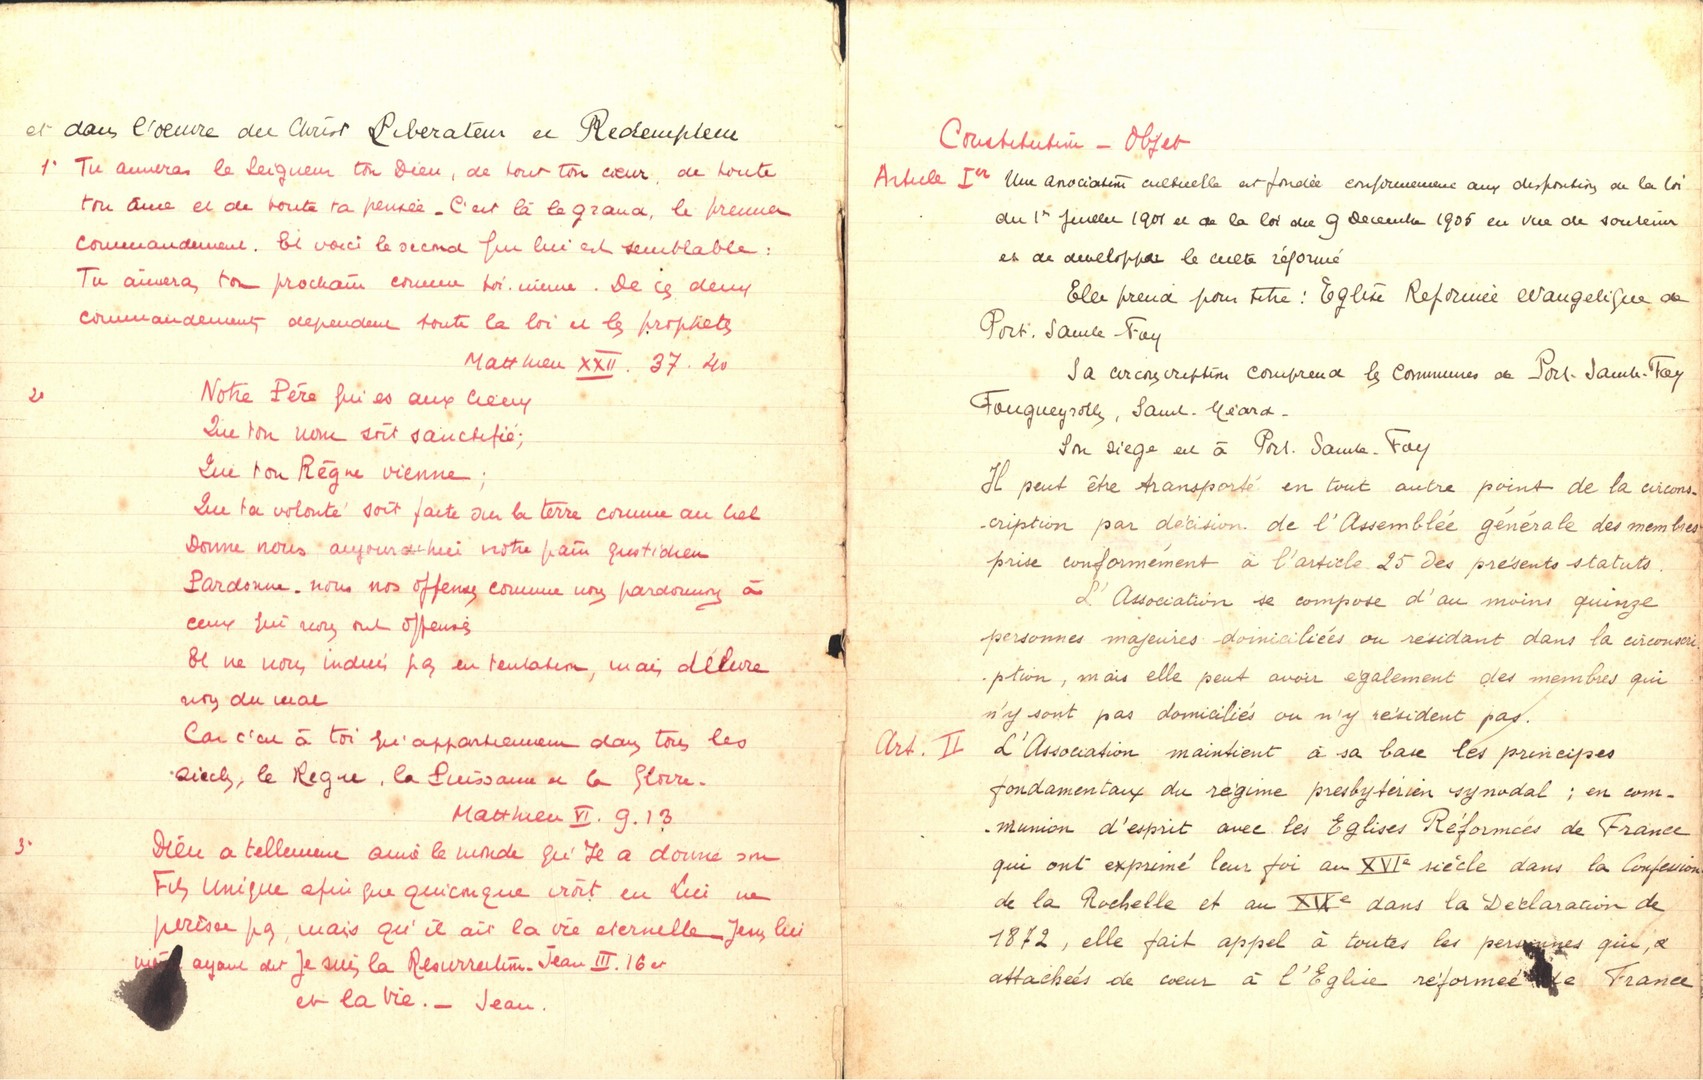 et dans l'oeuvre du Christ Liberateur et Redempteur
1° Tu aimeras le Seigneur ton Dieu, de tout ton cœur, de toute
ton âme et de toute ta pensée - C'est là le grand, le premier
commandement. Et voici le second qui lui est semblable :
Tu aimeras ton prochain comme toi-même. De ces deux
commandements dependent toute la loi et les prophètes
Matthieu XXII. 37. 40
2° Notre Père qui es aux cieux
Que ton nom soit sanctifié;
Que ton Règne vienne ;
Que ta volonté soit faite sur la terre comme au ciel
Donne nous aujourd'hui notre pain quotidien
Pardonne-nous nos offenses comme nous pardonnons à
ceux qui nous ont offensés
Et ne nous induis pas en tentation, mais délivre
nous du mal
Car c'est à toi qu'appartiennent dans tous les
siecles, le Regne, la Puissance et la Gloire.
Matthieu VI. 9.13
3° Dieu a tellement aimé le monde qu'Il a donné son
Fils Unique afin que quiconque croit en Lui ne
perisse pas, mais qu'il ait la vie eternelle - Jesus lui
ayant dit Je suis la Resurrection - Jean III. 16 et
et la Vie. - Jean.
Constitution - Objet
Article Ier Une association cultuelle est fondée conformement aux dispositions de la loi
du 1er Juillet 1901 et de la loi du 9 Decembre 1905 en vue de soutenir
et de developper le culte réformé
Elle prend pour titre : Eglise Reformée evangelique de
Port. Sainte-Foy
Sa circonscription comprend les Communes de Port-Sainte-Foy
Fougueyrolles, Saint-Méard-
Son siege est à Port. Sainte-Foy
Il peut être transporté en tout autre point de la circons-
-cription par décision de l'Assemblée générale des membres
prise conformément à l'article 25 des présents statuts.
L'Association se compose d'au moins quinze
personnes majeures domiciliées ou résidant dans la circonscri-
-ption, mais elle peut avoir également des membres qui
n'y sont pas domiciliés ou n'y résident pas.
Art. II L'Association maintient à sa base les principes
fondamentaux du régime presbytérien synodal ; en com-
-munion d'esprit avec les Eglises Réformées de France
qui ont exprimé leur foi au XVIe siècle dans la Confession
de la Rochelle et au XIXe dans la Déclaration de
1872, elle fait appel à toutes les personnes qui,
attachées de cœur à l'Eglise réformée de France